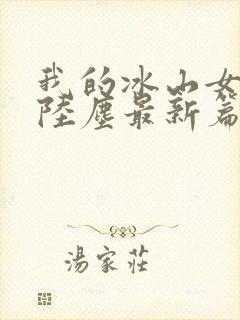 我的冰山女
陸塵最新篇
湯家莊